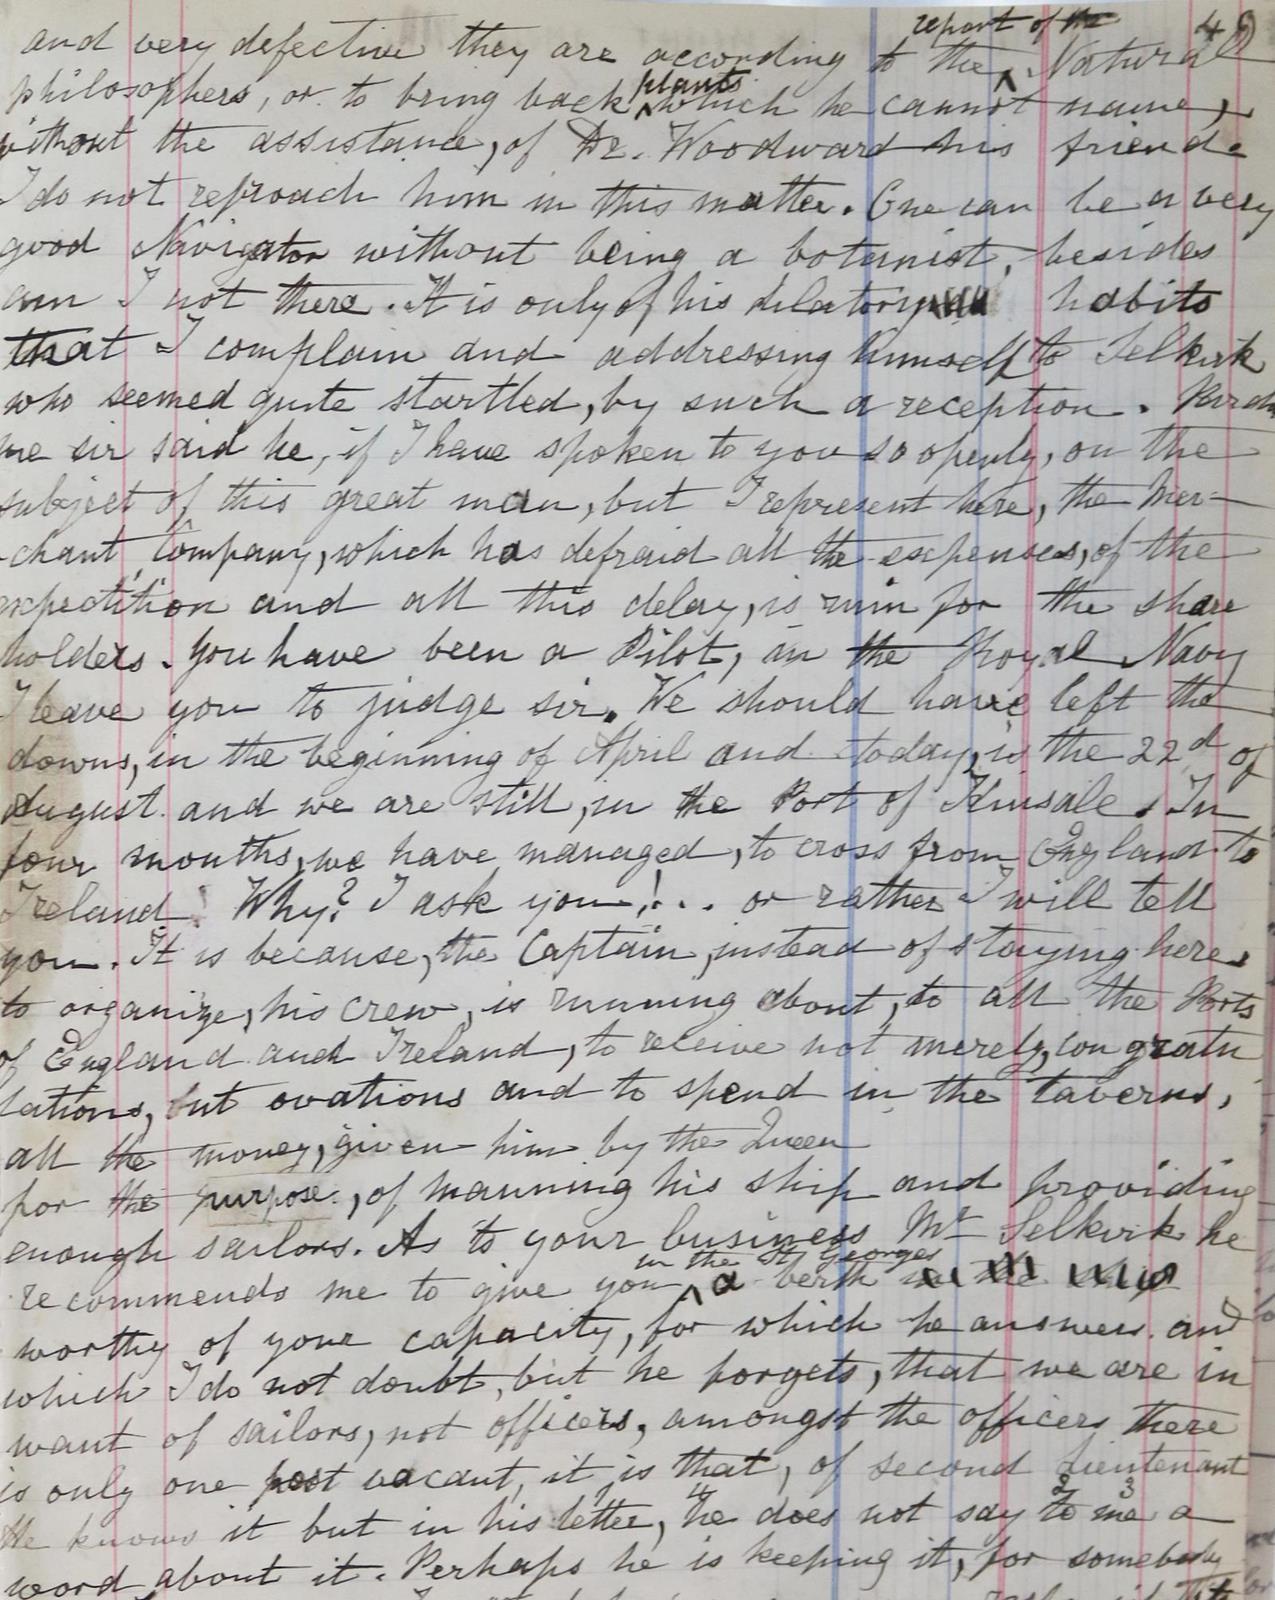 49
report of the
and very defective they are according to the ^ Natural
philosophers, or to bring back ^ plants which he cannot name,
without the assistance, of Dr. Woodward his friend.
I do not reproach him in this matter. One can be a very
good Navigator without being a botanist, besides
am I not there. It is only of his dilatory habits
that I complain and addressing himself to Selkirk
who seemed quite startled, by such a reception. Pardon
me sir said he, if I have spoken to you so openly, on the
subject of this great man, but I represent here, the Mer-
-chant Company, which has defraid all the expenses, of the
expectition and all this delay, is ruin for the share
holders. You have been a Pilot, in the Royal Navy
I leave you to judge sir. We should have left the
downs, in the beginning of April and today, is the 22d of
August and we are still, in the Port of Kinsale. In
four months, we have managed, to cross from England to
Ireland! Why? I ask you!.. or rather I will tell
you. It is because, the Captain, instead of staying here
to organize, his crew, is running about, to all the Ports
of England and Ireland, to receive not merely, congratu
lations, but ovations and to spend in the taverns,
all the money, given him by the Queen
for the purpose, of manning his ship and providing
enough sailors. As to your business Mr Selkirk he
recommends me to give you ^ in the St Georges a berth
worthy of your capacity, for which he answers and
which I do not doubt, but he forgets, that we are in
want of sailors, not officers, amongst the officers there
is only one post vacant, it is that, of second Lieutenant
He knows it but in his letter, he does not say to me a
word about it. Perhaps he is keeping it, for somebody